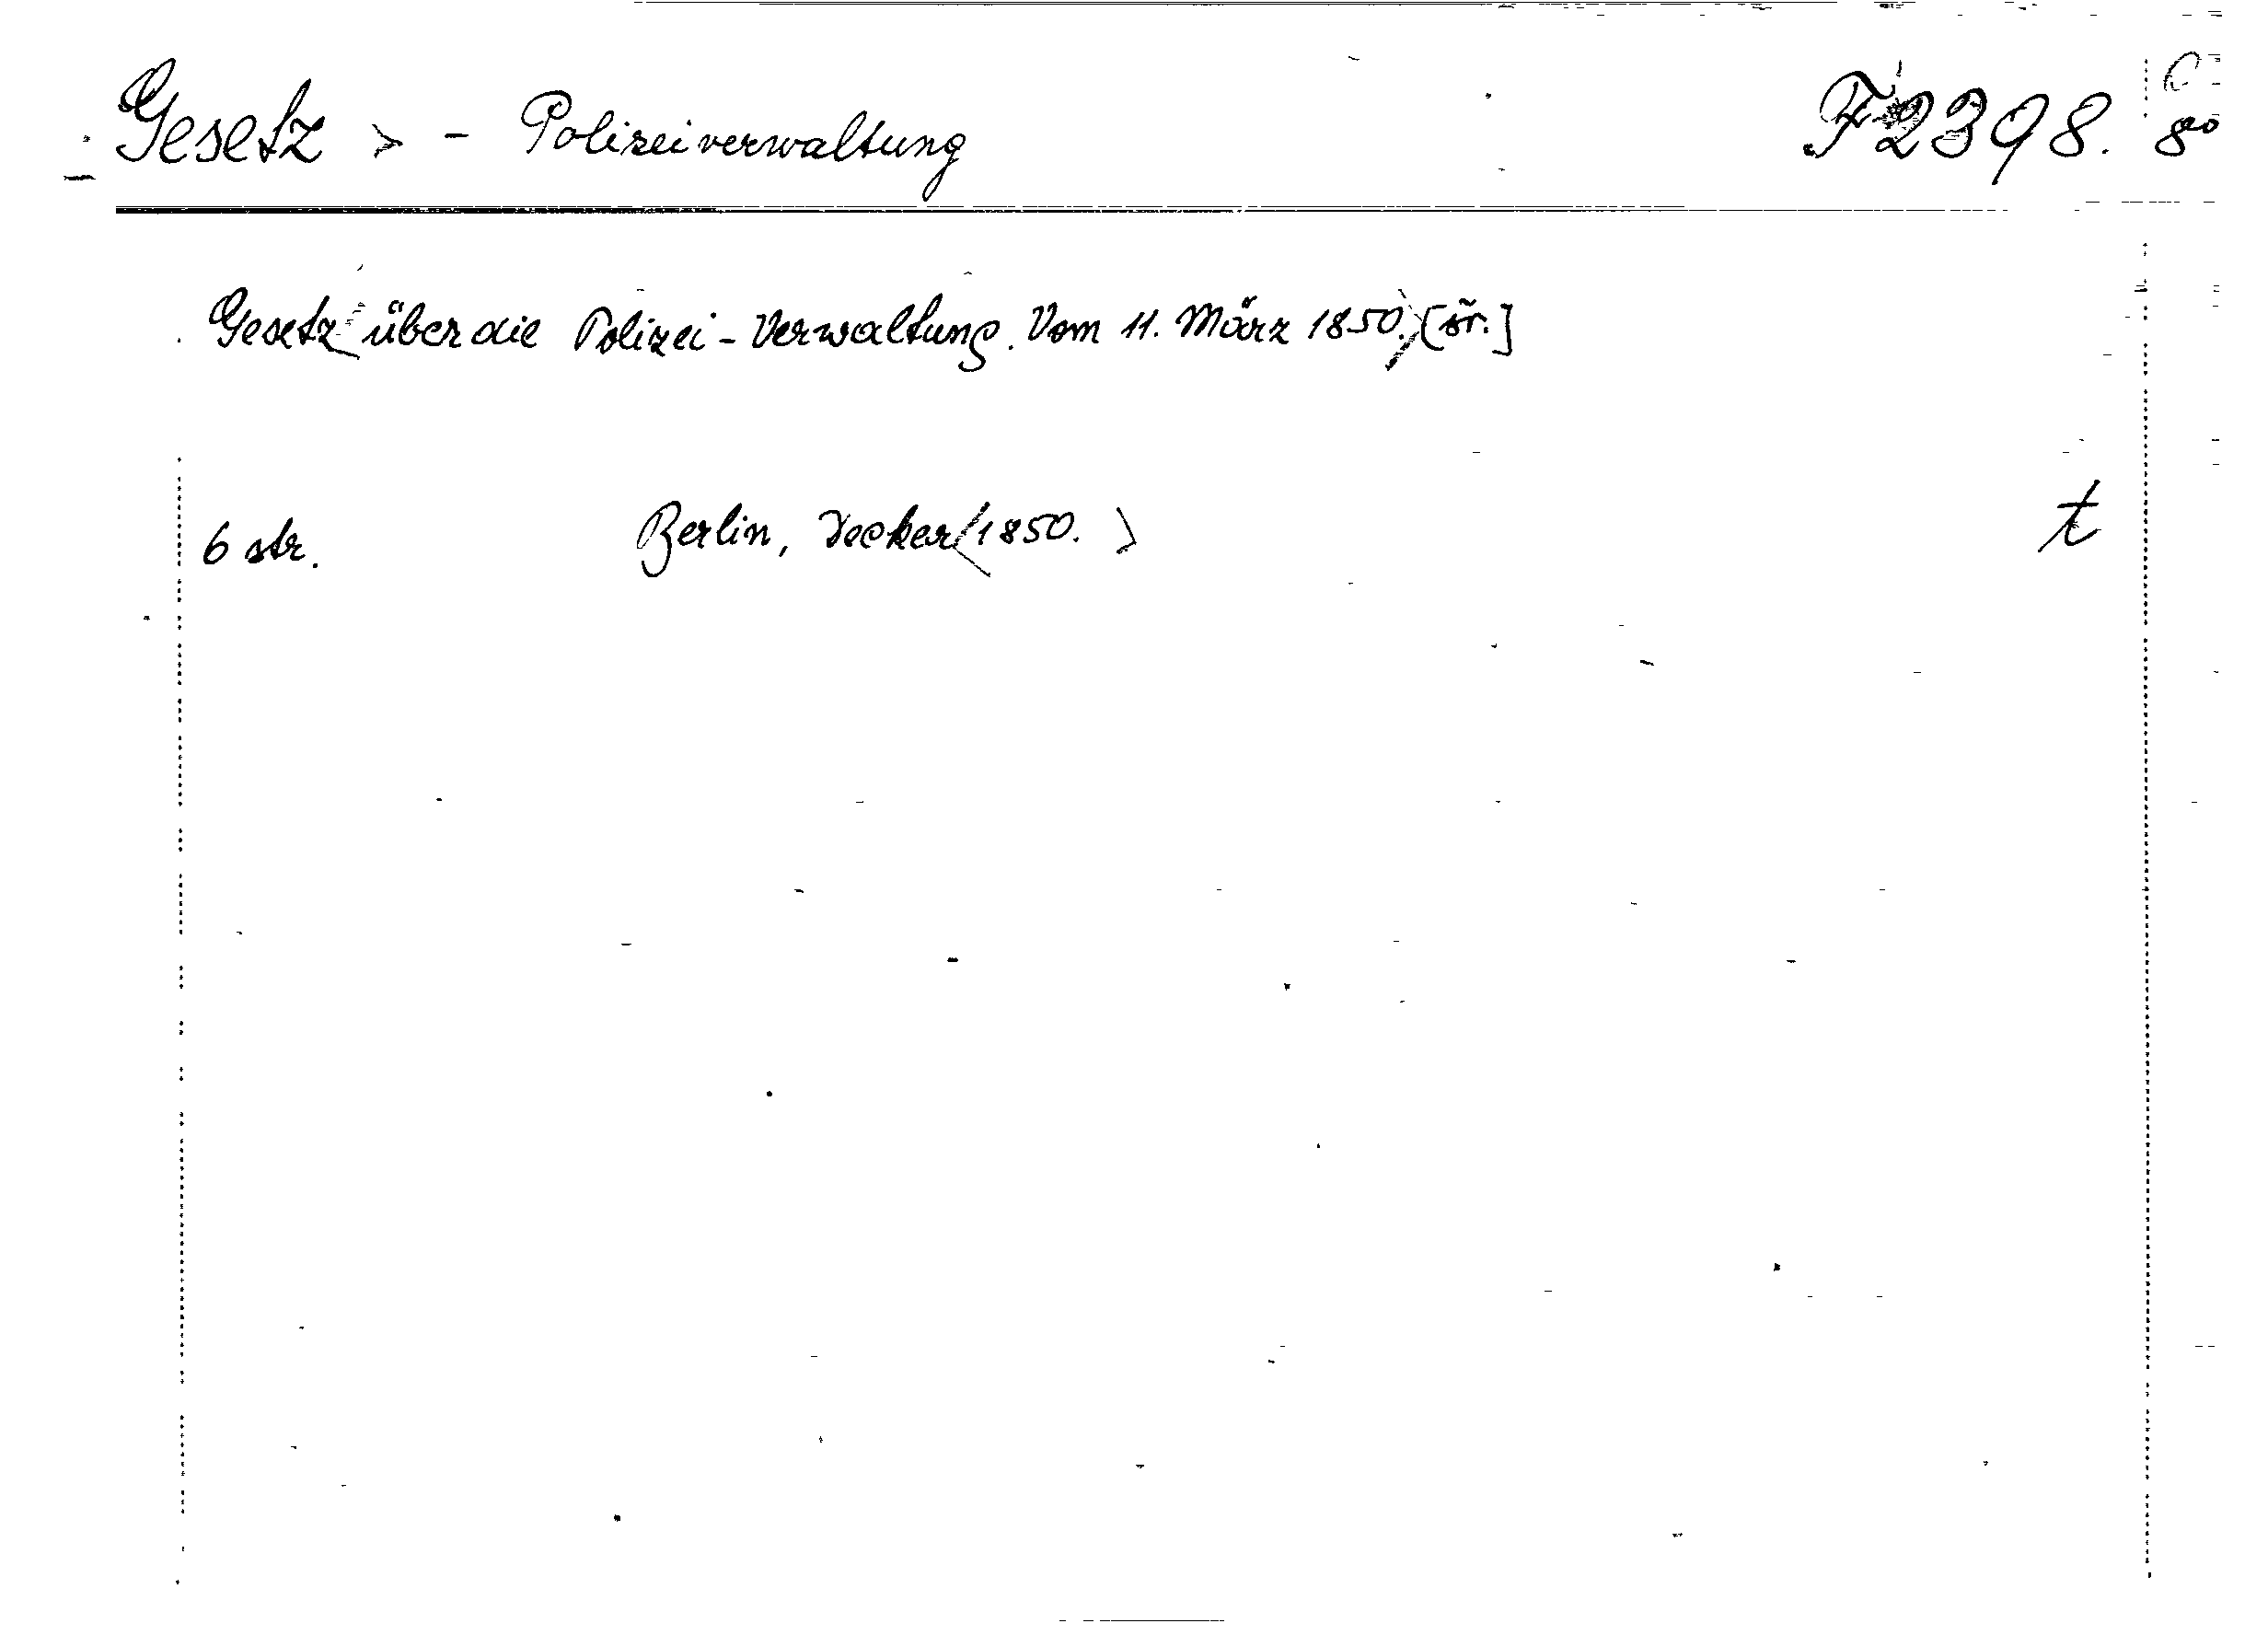 Gesetz > - Polizeiverwaltung F 2398. 8°
Gesetz über die Polizei-Verwaltung. Vom 11. März 1850.
6 str. Berlin, Decker 1850. t